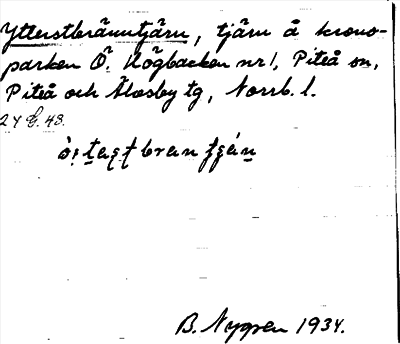 Ytterstbränntjärn, tjärn å krono-
parken Ö. Högbacken nr 1, Piteå sn,
Piteå och Älvsby tg, Norrb. l.
24 G. 43.
B. Nygren 1934.